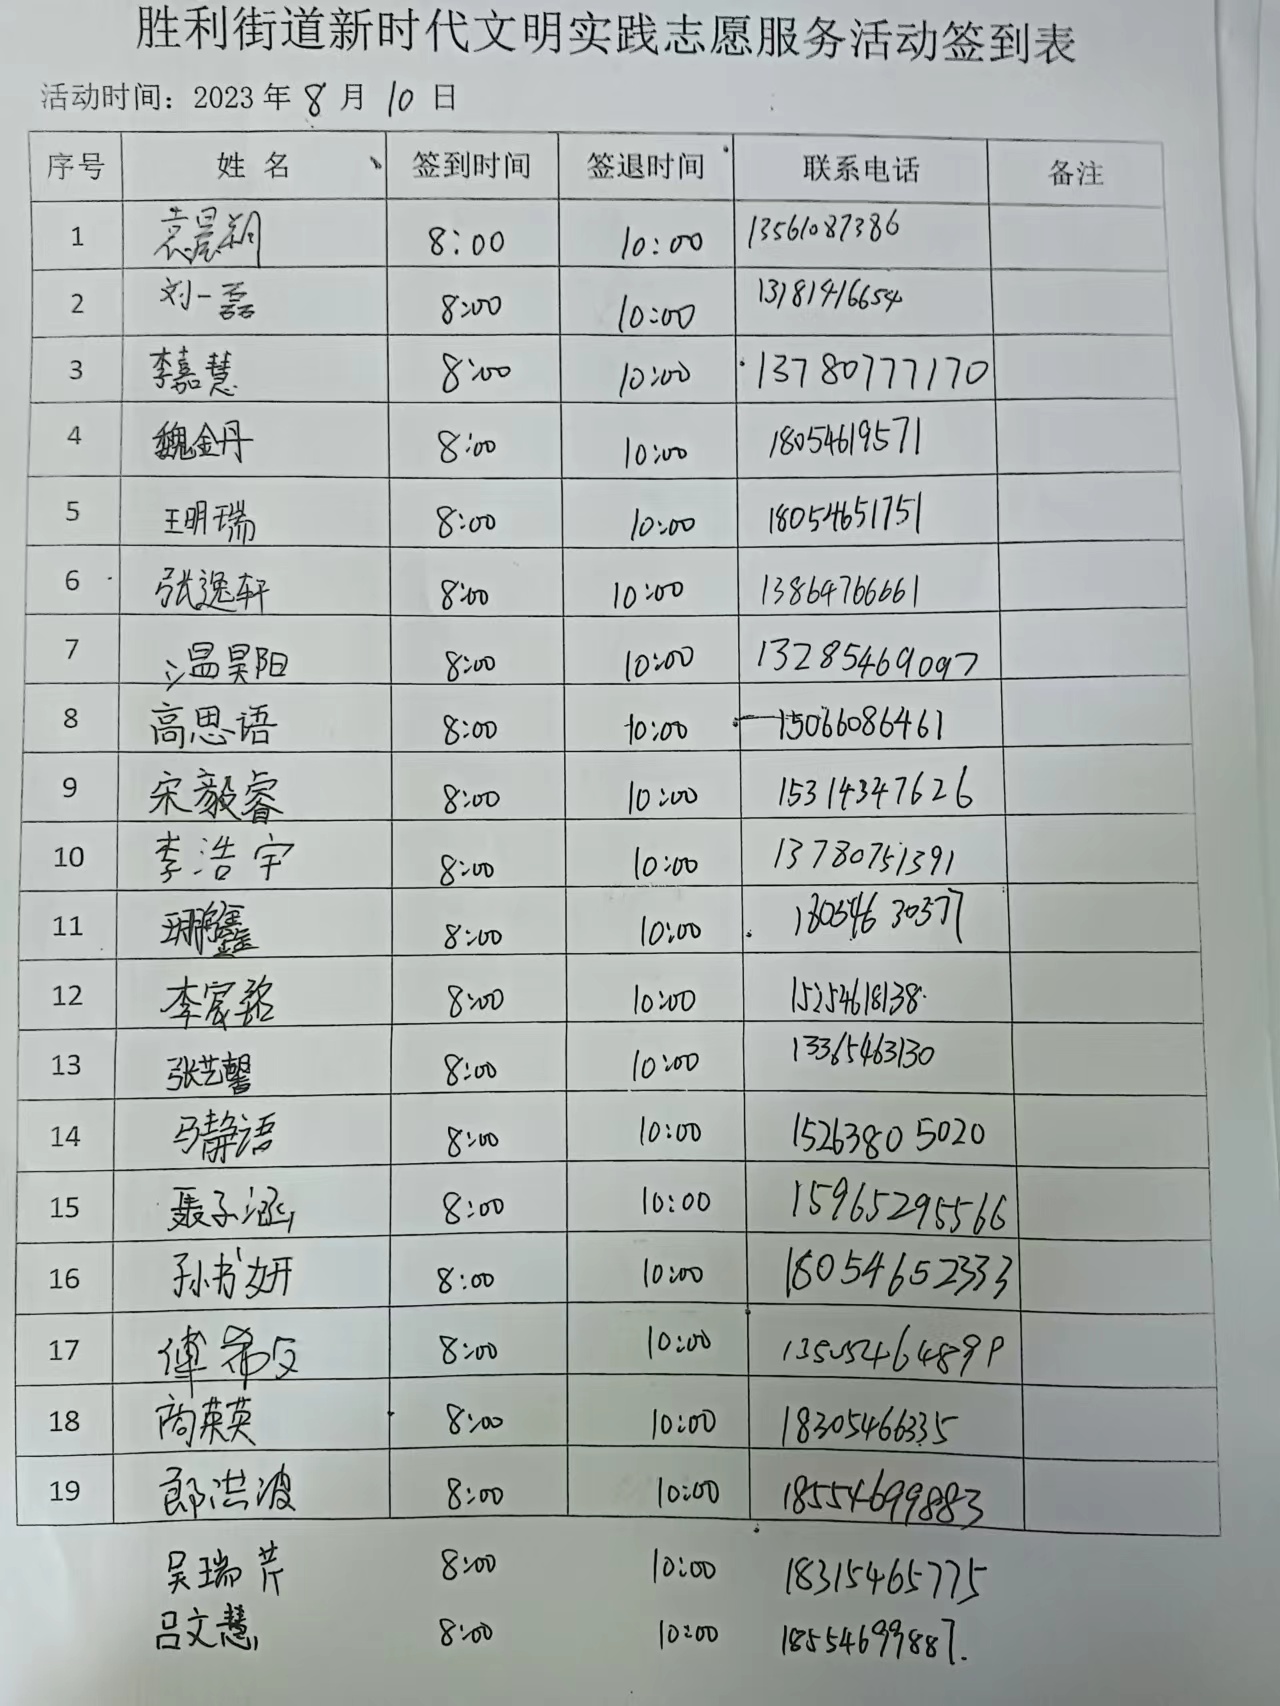 胜利街道新时代文明实践志愿服务活动签到表
活动时间：2023 年 8 月 10 日
序号 姓 名 签到时间 签退时间 联系电话 备注
1 袁晨朔 8:00 10:00 13561087386
2 刘一磊 8:00 10:00 13181416654
3 李嘉慧 8:00 10:00 13780777170
4 魏金丹 8:00 10:00 18054619571
5 王明瑞 8:00 10:00 18054651751
6 张逸轩 8:00 10:00 13864766661
7 温昊阳 8:00 10:00 13285469097
8 高思语 8:00 10:00 15066086461
9 宋毅睿 8:00 10:00 15314347626
10 李浩宇 8:00 10:00 13780751391
11 8:00 10:00 18054630377
12 李家懿 8:00 10:00 15254618138
13 张艺馨 8:00 10:00 13365463130
14 马静语 8:00 10:00 15263805020
15 聂子涵 8:00 10:00 15965295566
16 孙书妍 8:00 10:00 18054652333
17 傅希文 8:00 10:00
18 尚英英 8:00 10:00 18305466335
19 郎洪波 8:00 10:00 18554699883
吴瑞芹 8:00 10:00 18315465775
吕文慧 8:00 10:00 18554699887.